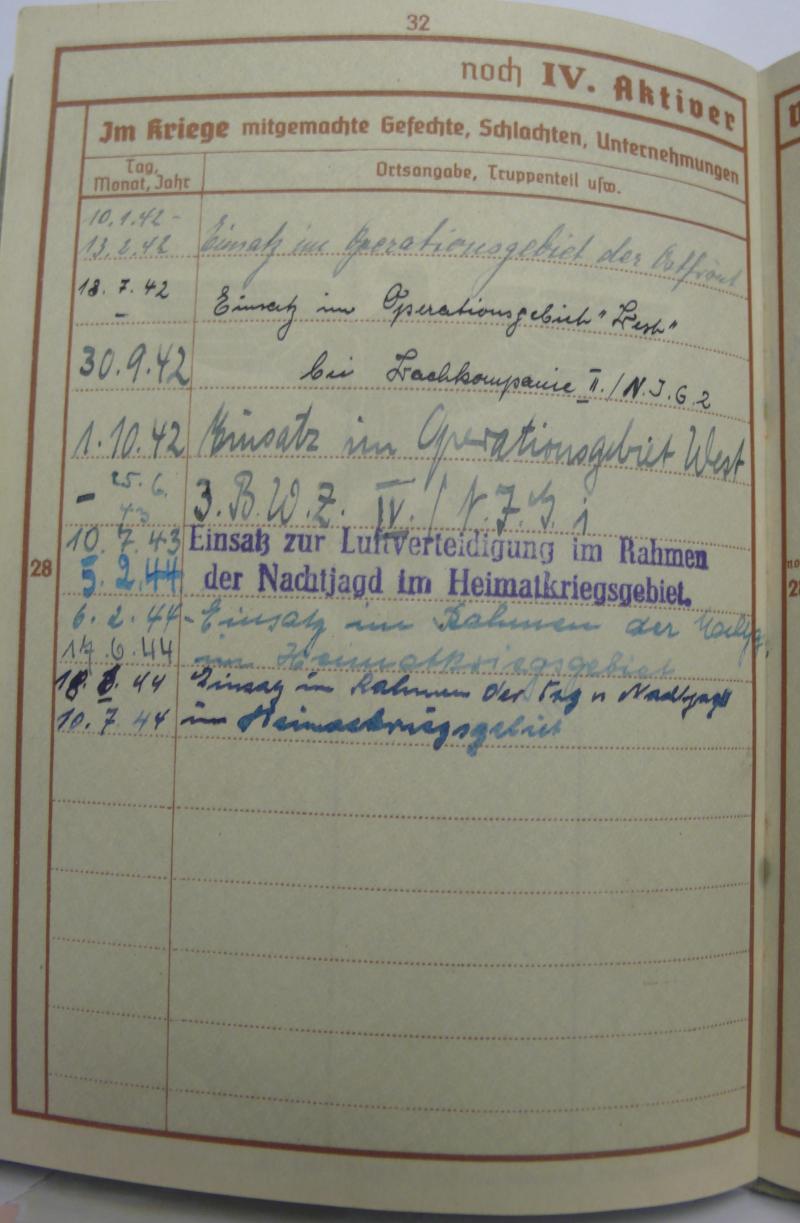 32
noch IV. Aktiver
Im Kriege mitgemachte Gefechte, Schlachten, Unternehmungen
Tag, Monat, Jahr
Ortsangabe, Truppenteil usw.
10.1.42 -
13.2.42 Einsatz im Operationsgebiet der Ostfront
18.7.42 Einsatz im Operationsgebiet "West"
-
30.9.42 bei Wachkompanie II./N.J.G.2
1.10.42 Einsatz im Operationsgebiet West
- 25.6.43 3. B.W.Z. IV./N.J.G. 1
10.7.43 Einsatz zur Luftverteidigung im Rahmen
28
5.2.44 der Nachtjagd im Heimatkriegsgebiet.
6.2.44 - Einsatz im Rahmen der
17.6.44 im Heimatkriegsgebiet
18.6.44 Einsatz im Rahmen der Tag u Nachtjagd
10.7.44 im Heimatkriegsgebiet